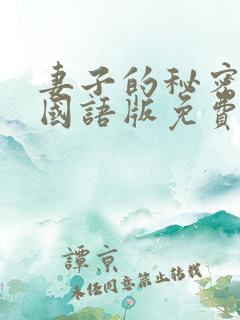 妻子的秘密
國語版免費
譚京
未經同意禁止轉載